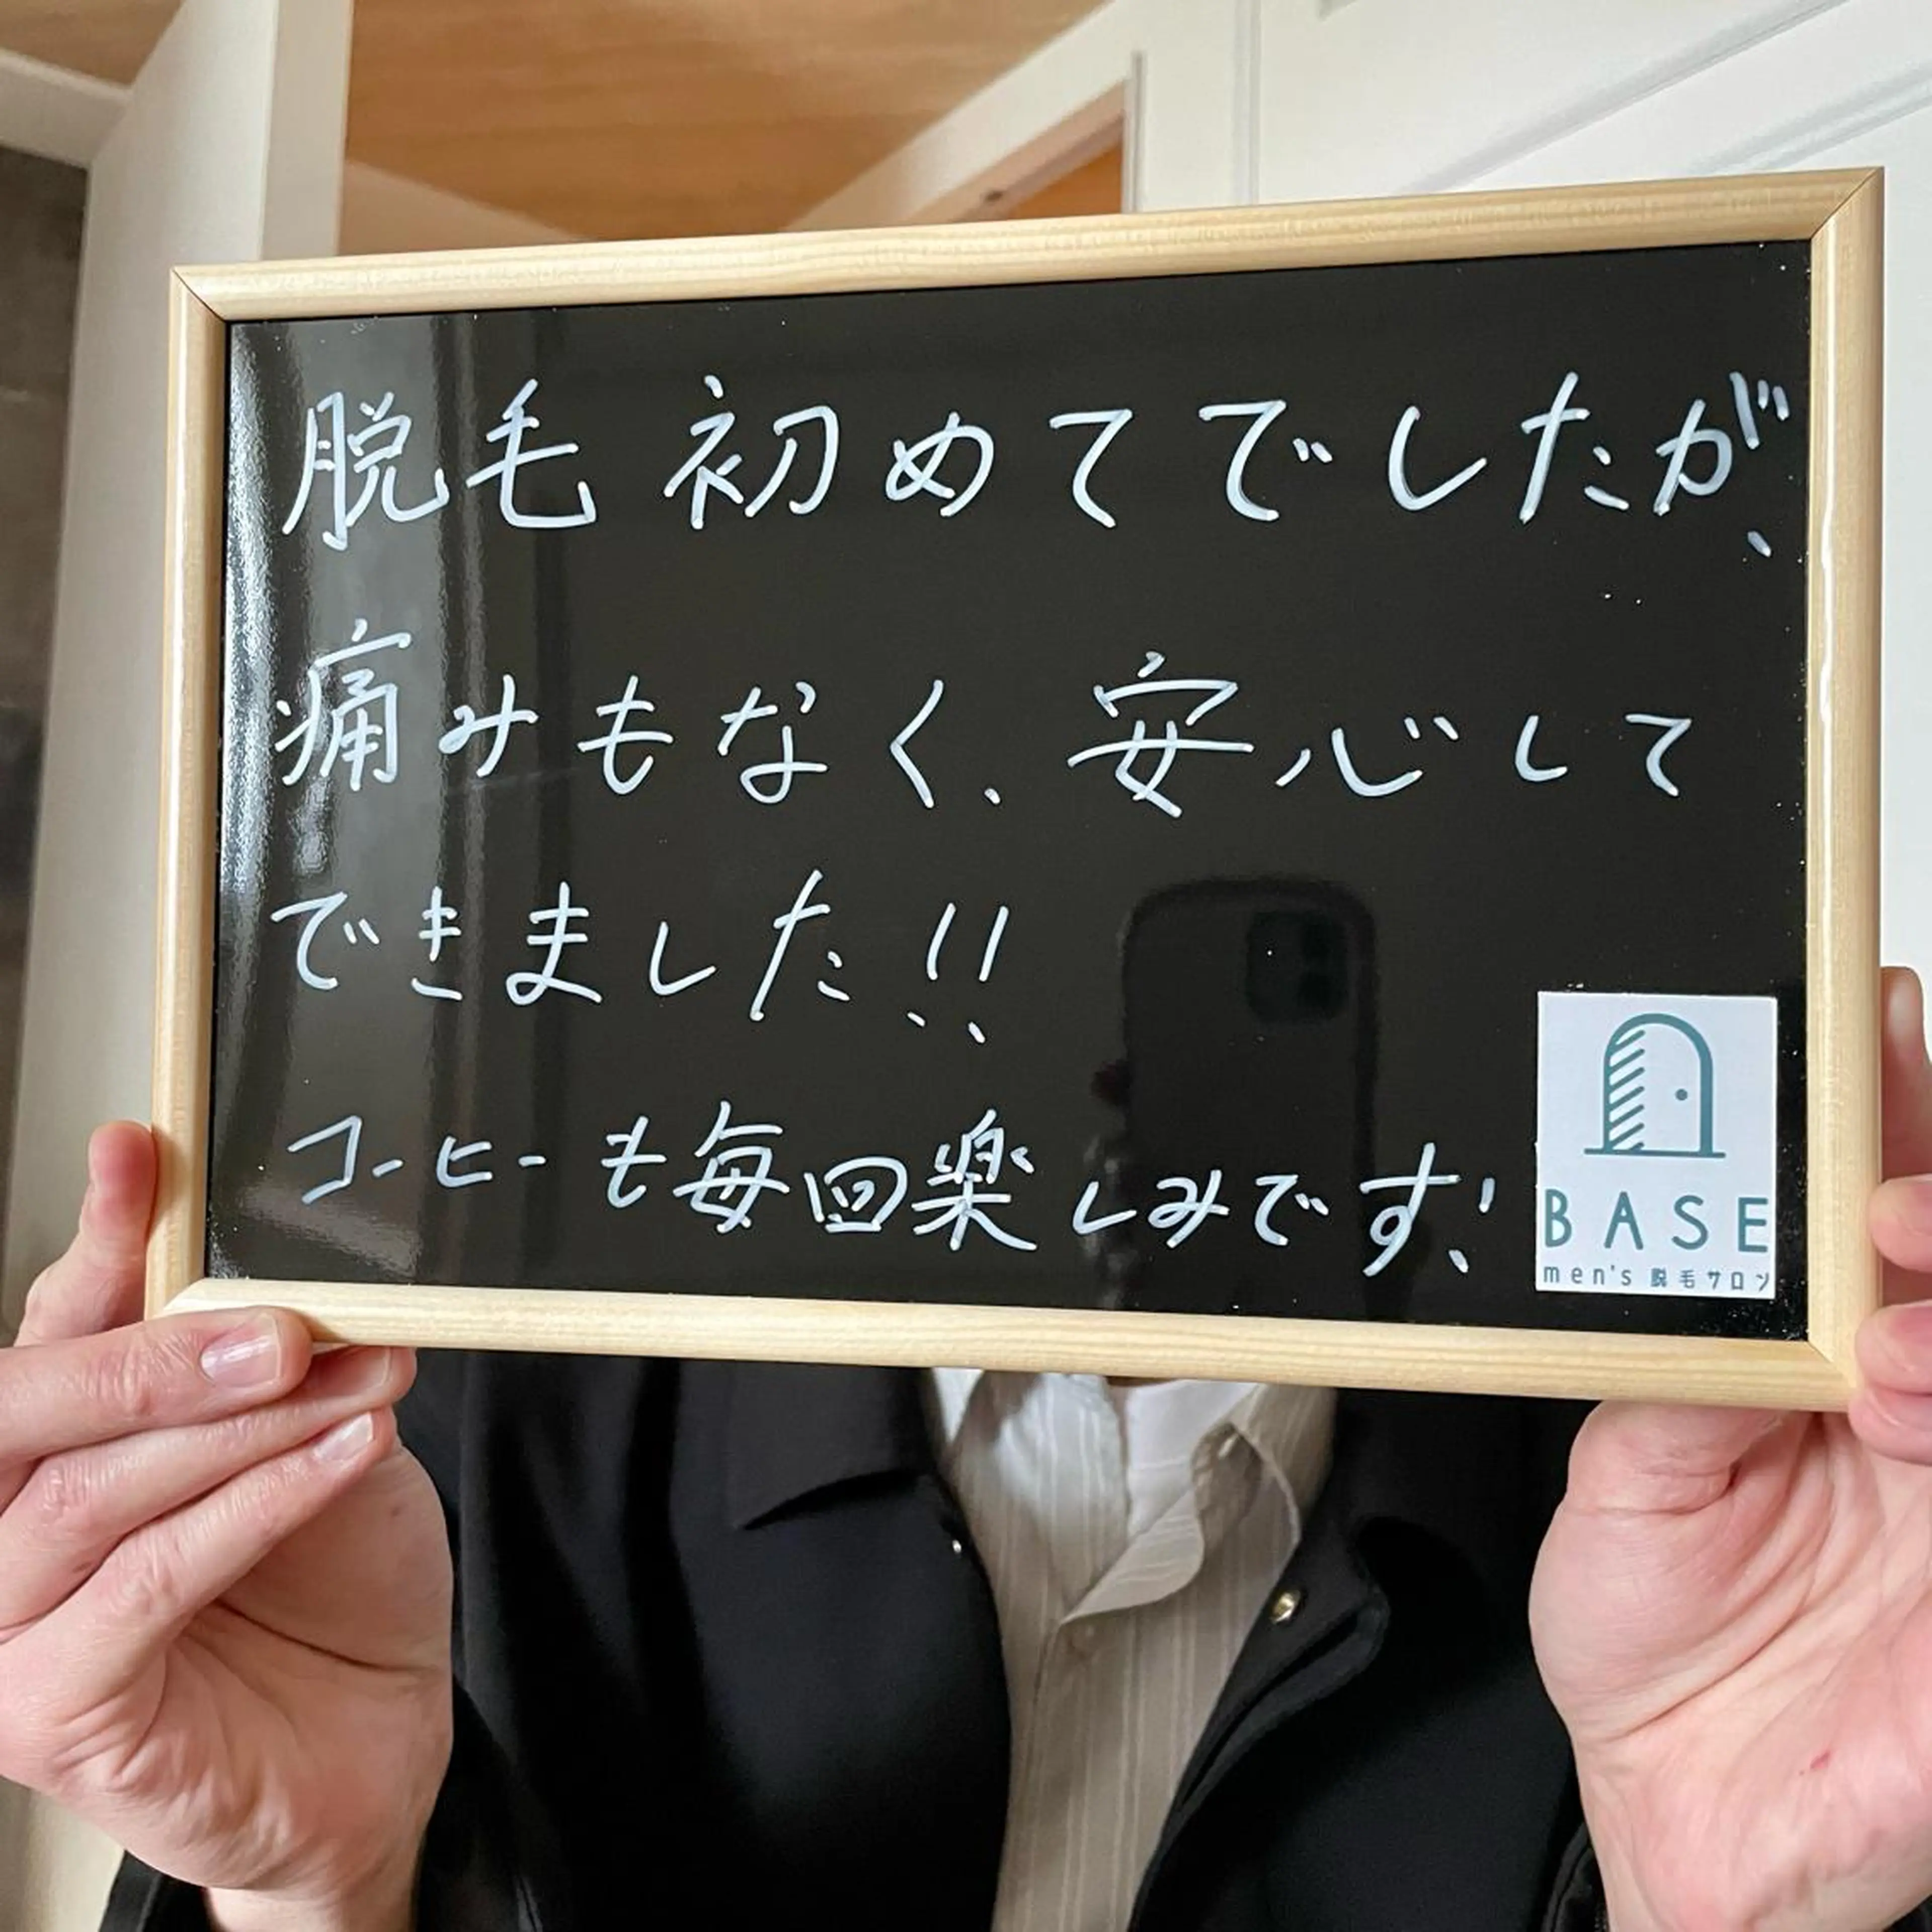 脱毛初めてでしたが、
痛みもなく、安心して
できました!!
コーヒーも毎回楽しみです!
BASE
men's 脱毛サロン